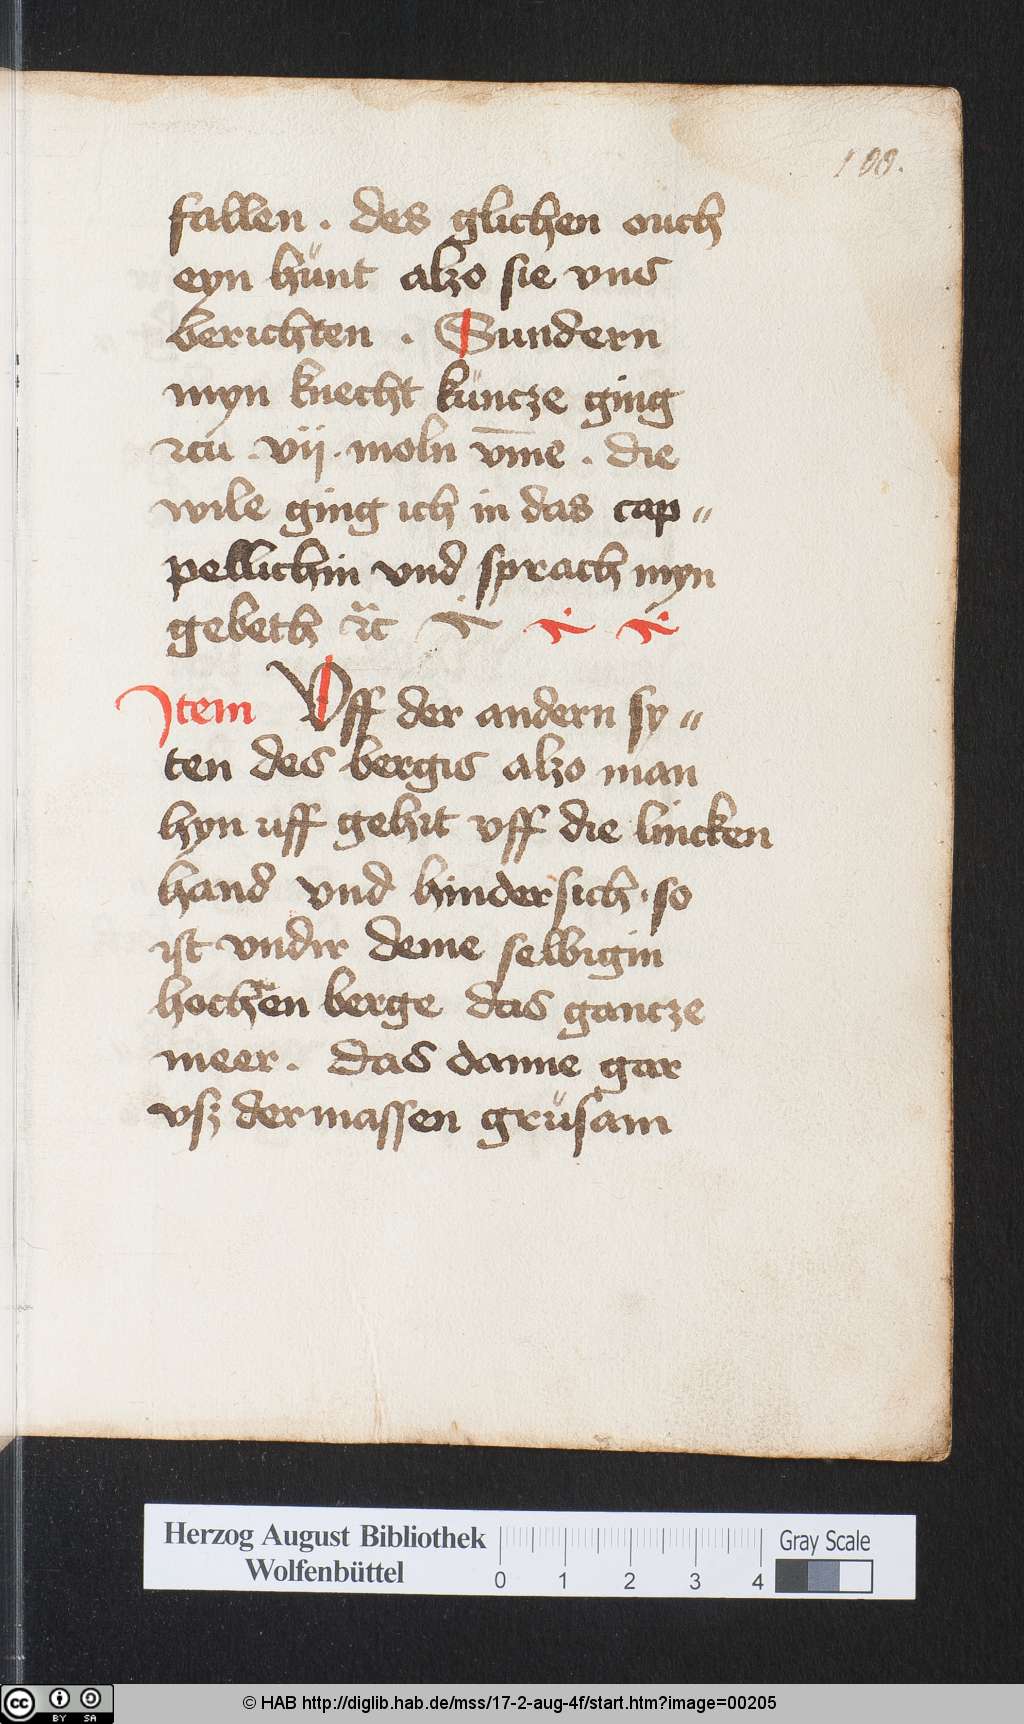 100.
fallen . des glichen ouch
eyn hünt alzo sie vns
berichten . Sundern
myn knecht küncze ging
zcu .vij. moln vm̅e . die
wile ging ich in das cap〃
pellichin vnd sprach myn
gebeth
Item Vff der andern sy〃
ten des bergis alzo man
hyn uff gehit vff die lincken
hand vnd hindersich · so
ist vndir deme selbigin
hochen berge das gancze
meer . das danne gar
vsz dermassen grüsam
Herzog August Bibliothek
Wolfenbüttel
0 1 2 3 4
Gray Scale
cc BY SA
© HAB http://diglib.hab.de/mss/17-2-aug-4f/start.htm?image=00205